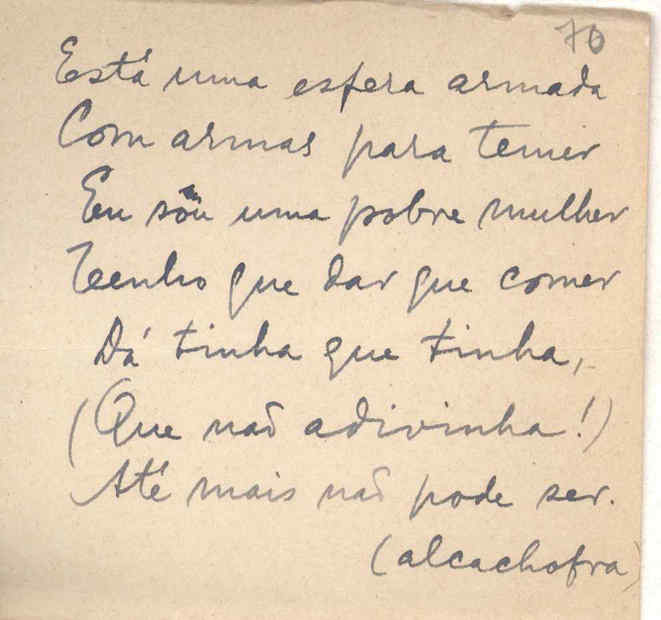 70
Está uma esfera armada
Com armas para temer
Eu sou uma pobre mulher
Tenho que dar que comer
Dá tinha que tinha,
(Que não adivinha!)
Até mais não pode ser.
(alcachofra)